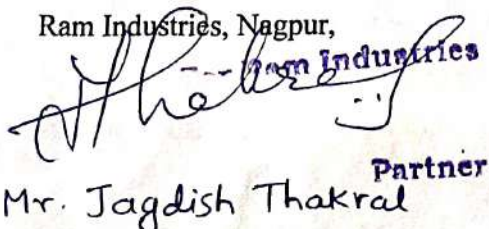 Ram Industries, Nagpur,
Ram Industries
Partner
Mr. Jagdish Thakral